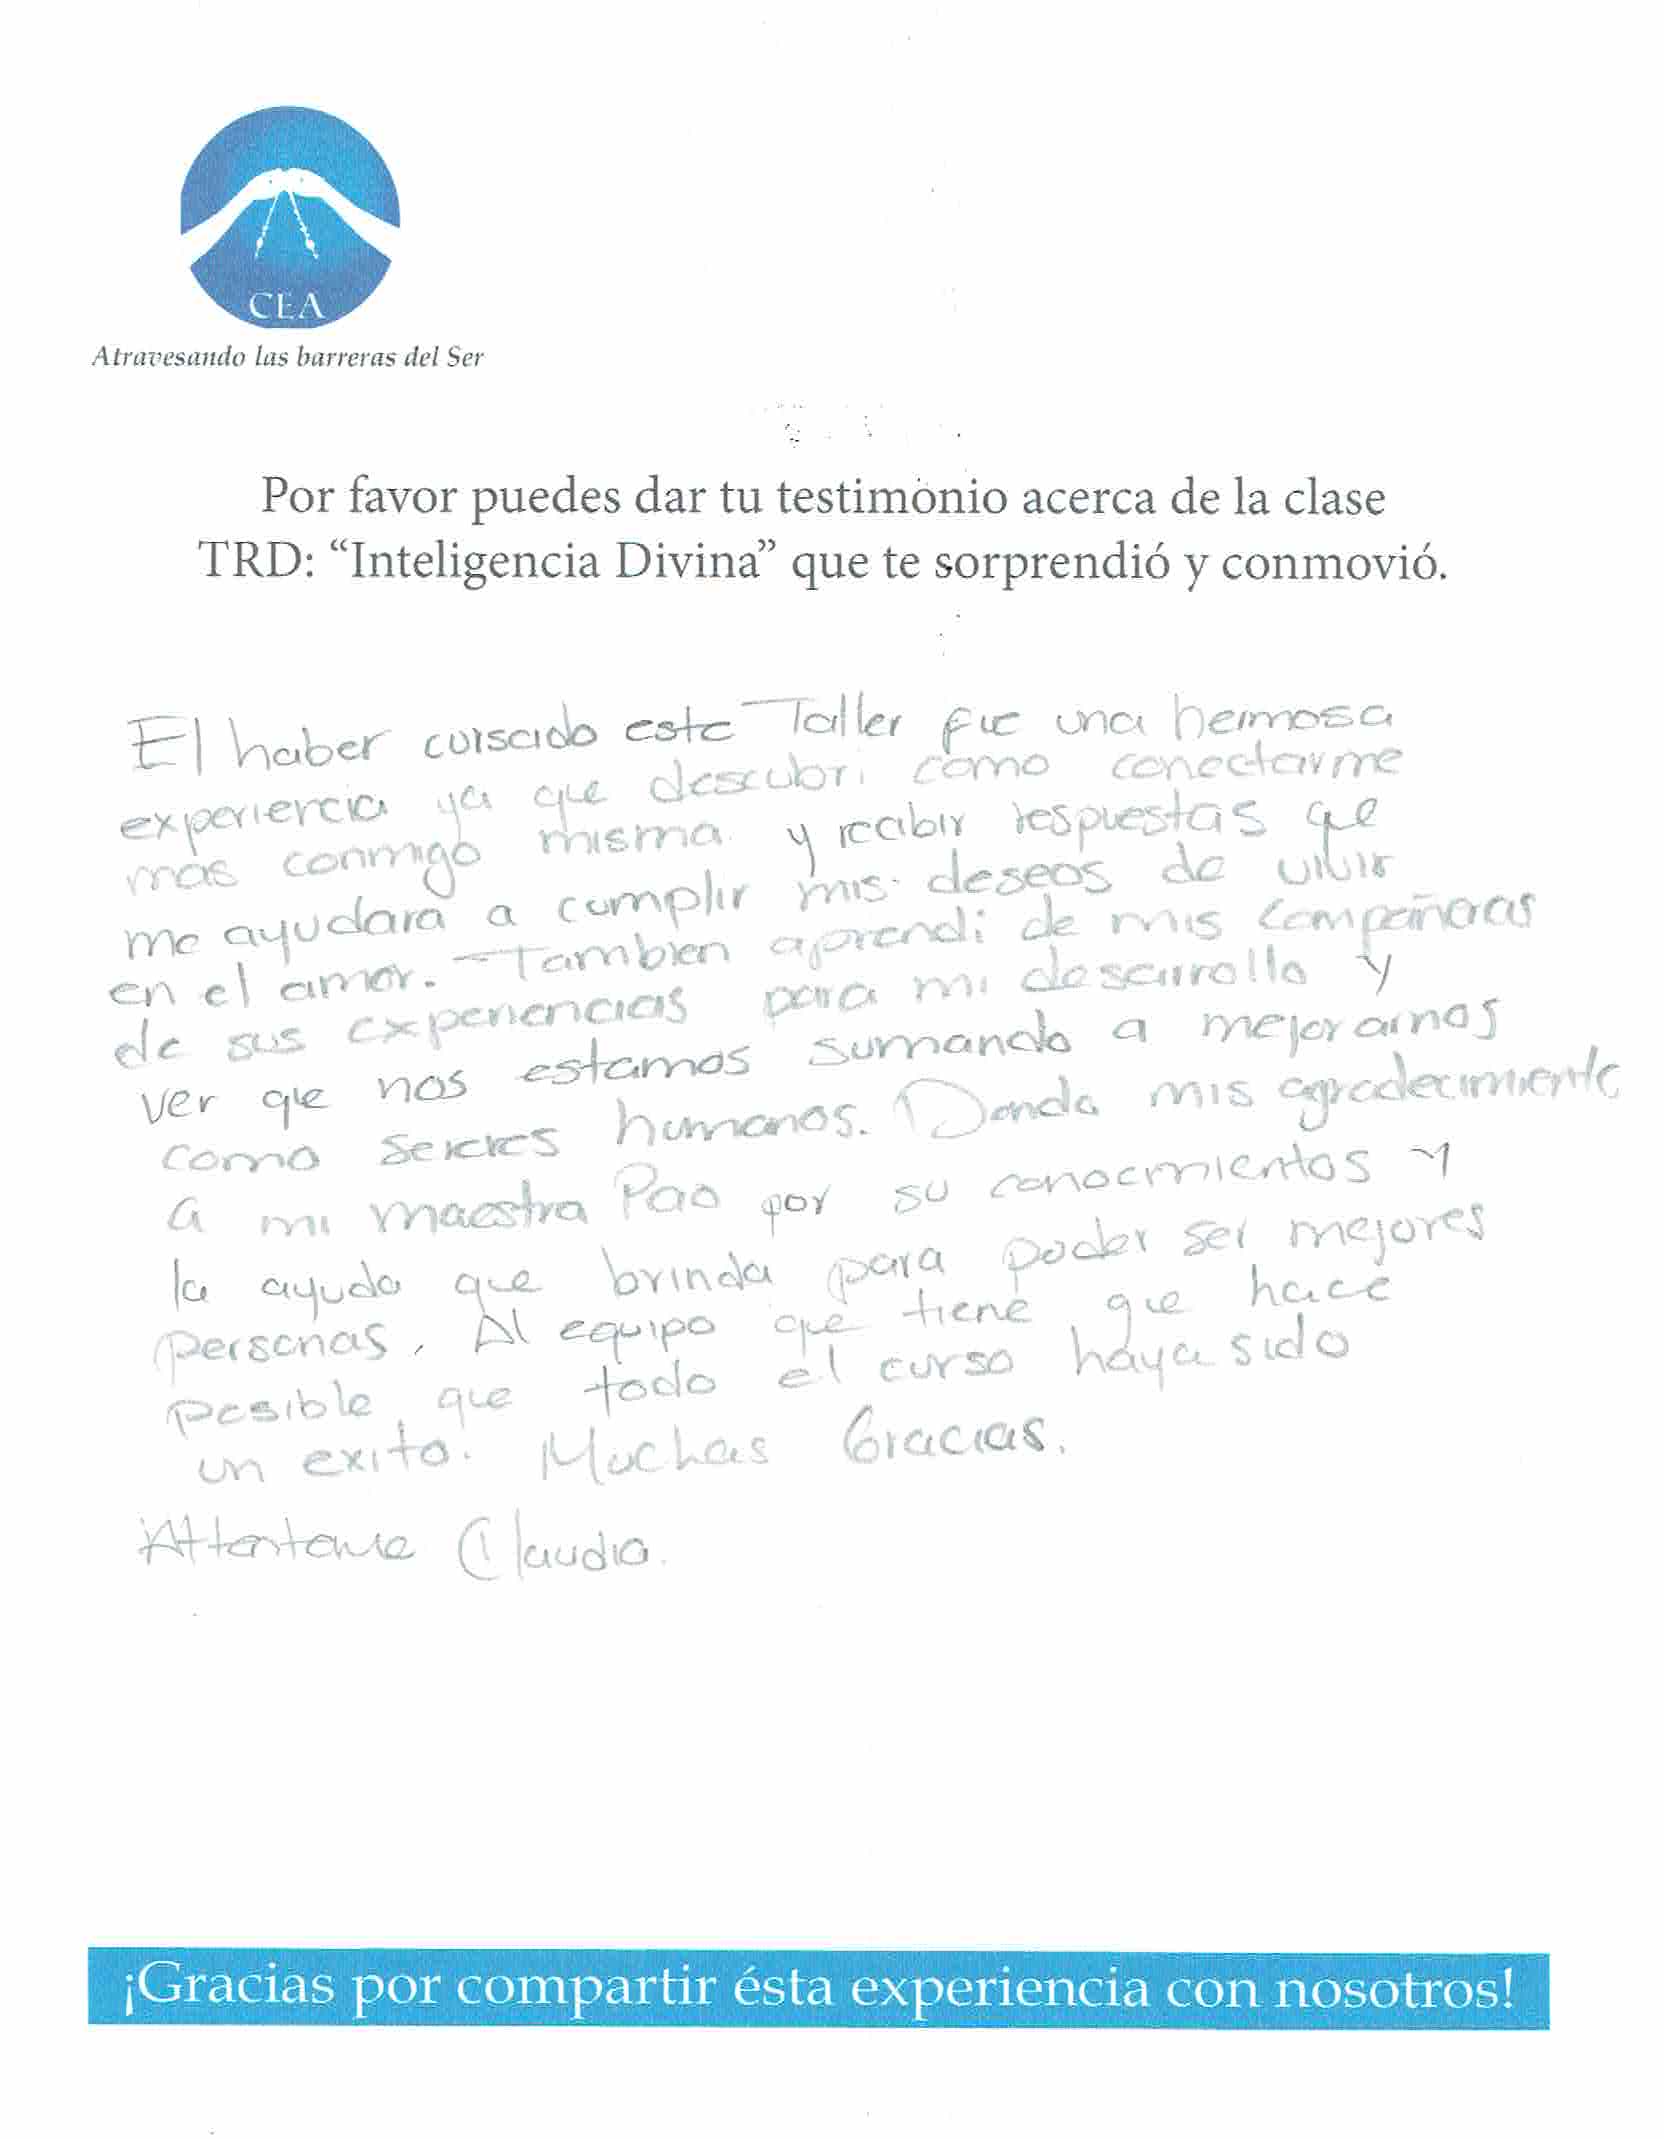 CEA
Atravesando las barreras del Ser
Por favor puedes dar tu testimonio acerca de la clase
TRD: “Inteligencia Divina” que te sorprendió y conmovió.
El haber cursado este Taller fue una hermosa
experiencia ya que descubri como conectarme
mas conmigo misma y recibir respuestas que
me ayudara a cumplir mis deseos de vivir
en el amor. Tambien aprendi de mis compañeras
de sus experiencias para mi desarrollo y
ver que nos estamos sumando a mejorarnos
como seres humanos. Dando mis agradecimiento
a mi maestra Pao por su conocmientos y
la ayuda que brinda para poder ser mejores
personas, Al equipo que tiene que hace
posible que todo el curso haya sido
un exito. Muchas Gracias.
Claudia.
¡Gracias por compartir ésta experiencia con nosotros!